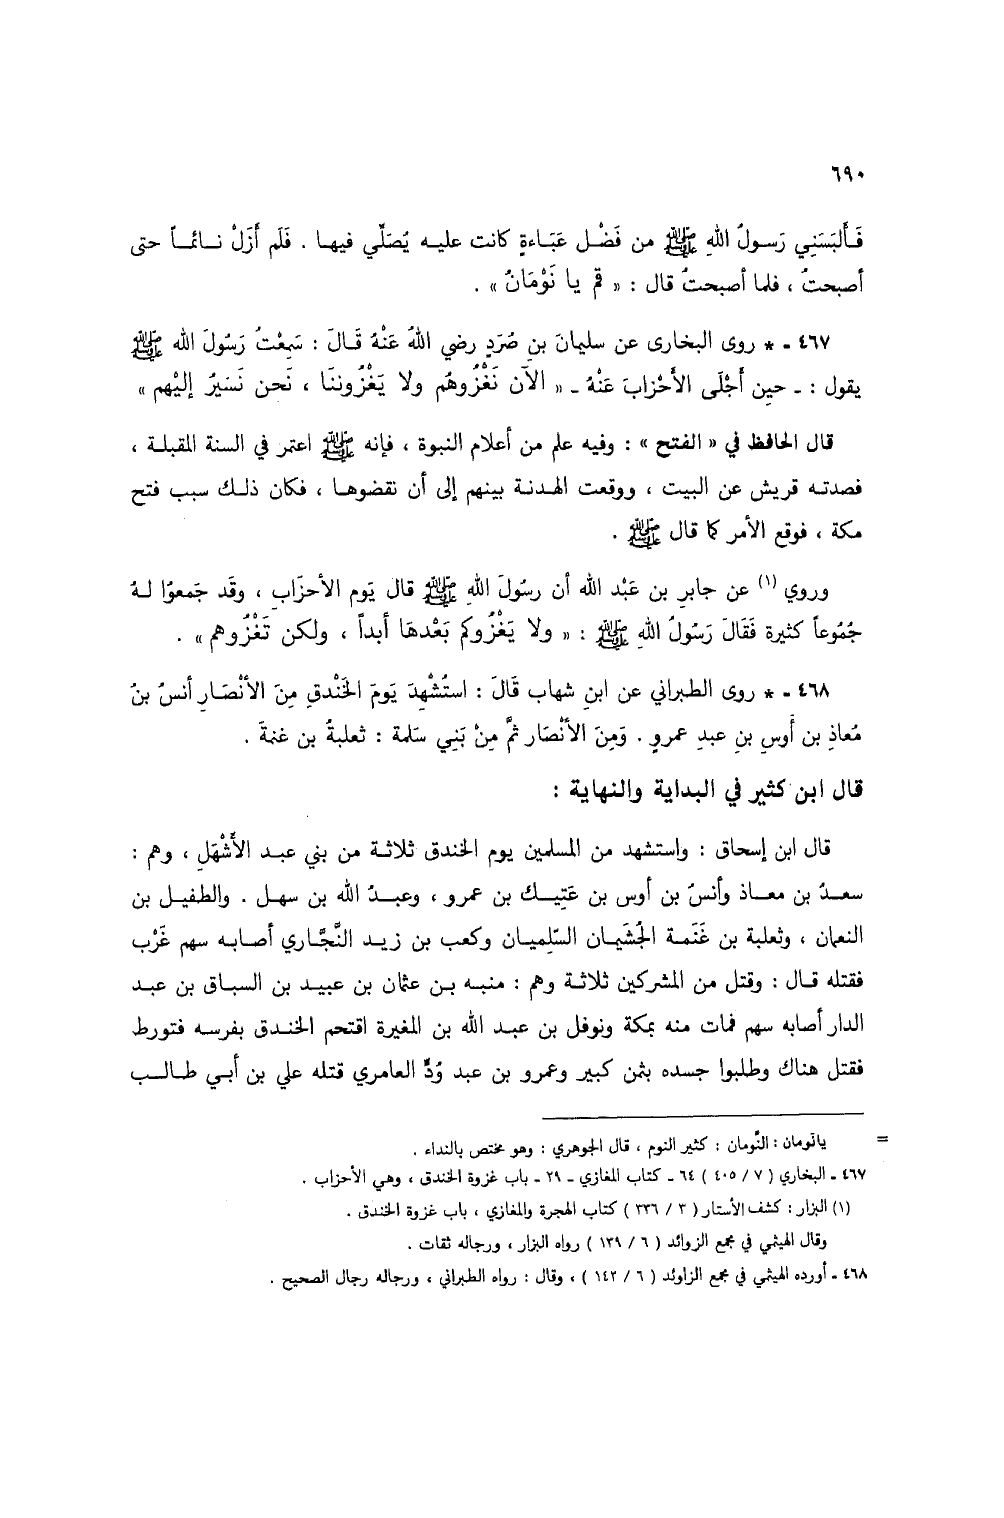 ٦٩٠
فَأَلبَسَنِي رَسولُ اللهِ ﷺ من فَضْل عَبَاءةٍ كانت عليه يُصَلّي فيها . فَلَم أَزَلْ نـائمـاً حتى
أصبحتُ ، فلما أصبحتُ قال : « قم يا نَوْمَانُ » .
٤٦٧ ـ * روى البخارى عن سليمانَ بنِ صُرَدٍ رضي اللهُ عَنْهُ قَـالَ : سَمِعْتُ رَسُولَ الله ﷺ
يقول : ـ حين أَجْلَى الأَحْزابَ عَنْهُ ـ « الآن نَغْزُوهُم ولا يَغْزُوننَا ، نَحن نَسَيرُ إليْهِم »
قال الحافظ في « الفتح » : وفيه علم من أعلام النبوة ، فإنه ﷺ اعتمر في السنة المقبلة ،
فصدتـه قريش عن البيت ، ووقعت الهـدنـة بينهم إلى أن نقضوهـا ، فكان ذلـك سبب فتح
مكة ، فوقع الأمر كما قال ﷺ .
وروي (١) عن جابرِ بن عَبْد الله أن رسُولَ اللهِ ﷺ قال يَوم الأحزَابِ ، وقَد جَمعوُا لـهُ
جُمُوعاً كثيرة فَقَالَ رَسُولُ اللهِ ﷺ : « ولا يَغْزُوكم بَعْدهَا أبداً ، ولكن تَغْزُوهم » .
٤٦٨ ـ * روى الطبراني عن ابنِ شهاب قَالَ : استُشْهِدَ يَومَ الخَندقِ مِنَ الأنْصَارِ أنسُ بنُ
مُعاذِ بن أوسِ بنِ عبدِ عمروٍ . وَمِنَ الأنْصَار ثمَّ مِنْ بَنِي سَلمة : ثعلبةُ بن غنمَةَ .
قال ابن كثير في البداية والنهاية :
قال ابن إسحاق : واستشهد من المسلمين يوم الخندق ثلاثـة من بني عبـد الأَشْهَلِ ، وهم :
سعـدُ بن معـاذ وأَنسُ بن أوس بن عَتِيـك بن عمرو ، وعبـدُ الله بن سهـل . والطفيـل بن
النعمان ، وثعلبة بن غَنَمـة الجُشَمِيـان السّلِميـان وكعب بن زيـد النَّجّاري أصابـه سهم غَرْب
فقتله قـال : وقتل من المشركين ثلاثـة وهم : منبـه بـن عثمان بن عبيـد بن السبـاق بن عبـد
الدار أصابه سهم فمات منه بمكة ونوفل بن عبـد الله بن المغيرة اقتحم الخنـدق بفرسـه فتورط
فقتل هناك وطلبوا جسده بثمن كبير وعمرو بن عبد وُدٍّ العامري قتله علي بن أبي طـالـب
= يانَومان : النَّومان : كثير النوم ، قال الجوهري : وهو مختص بالنداء .
٤٦٧ ـ البخاري ( ٧ / ٤٠٥ ) ٦٤ ـ كتاب المغازي ـ ٢٩ ـ باب غزوة الخندق ، وهي الأحزاب .
(١) البزار : كشف الأستار ( ٣ / ٣٣٦ ) كتاب الهجرة والمغازي ، باب غزوة الخندق .
وقال الهيثمي في مجمع الزوائد ( ٦ / ١٣٩ ) رواه البزار ، ورجاله ثقات .
٤٦٨ ـ أورده الهيثمي في مجمع الزاوئد ( ٦ / ١٤٢ ) ، وقال : رواه الطبراني ، ورجاله رجال الصحيح .